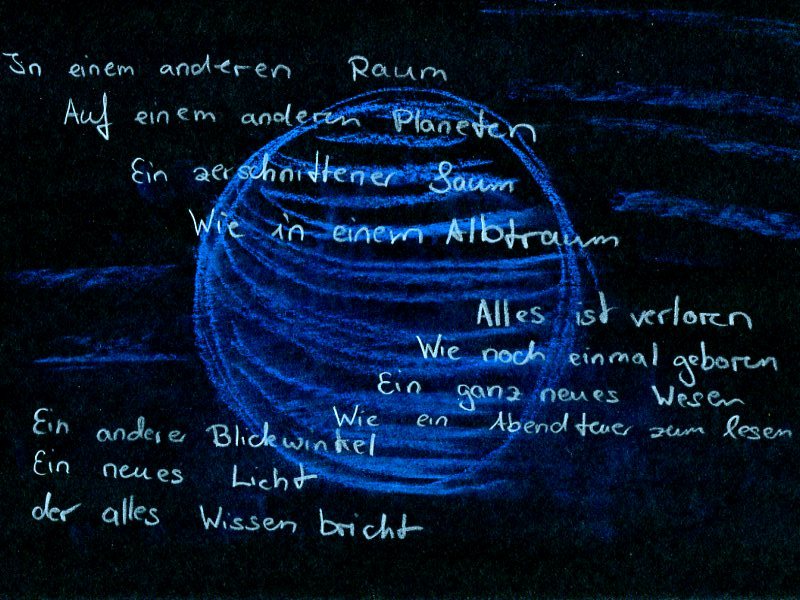 In einem anderen Raum
Auf einem anderen Planeten
Ein zerschnittener Saum
Wie in einem Albtraum
Alles ist verloren
Wie noch einmal geboren
Ein ganz neues Wesen
Wie ein Abendteuer zum lesen
Ein anderer Blickwinkel
Ein neues Licht
der alles Wissen bricht